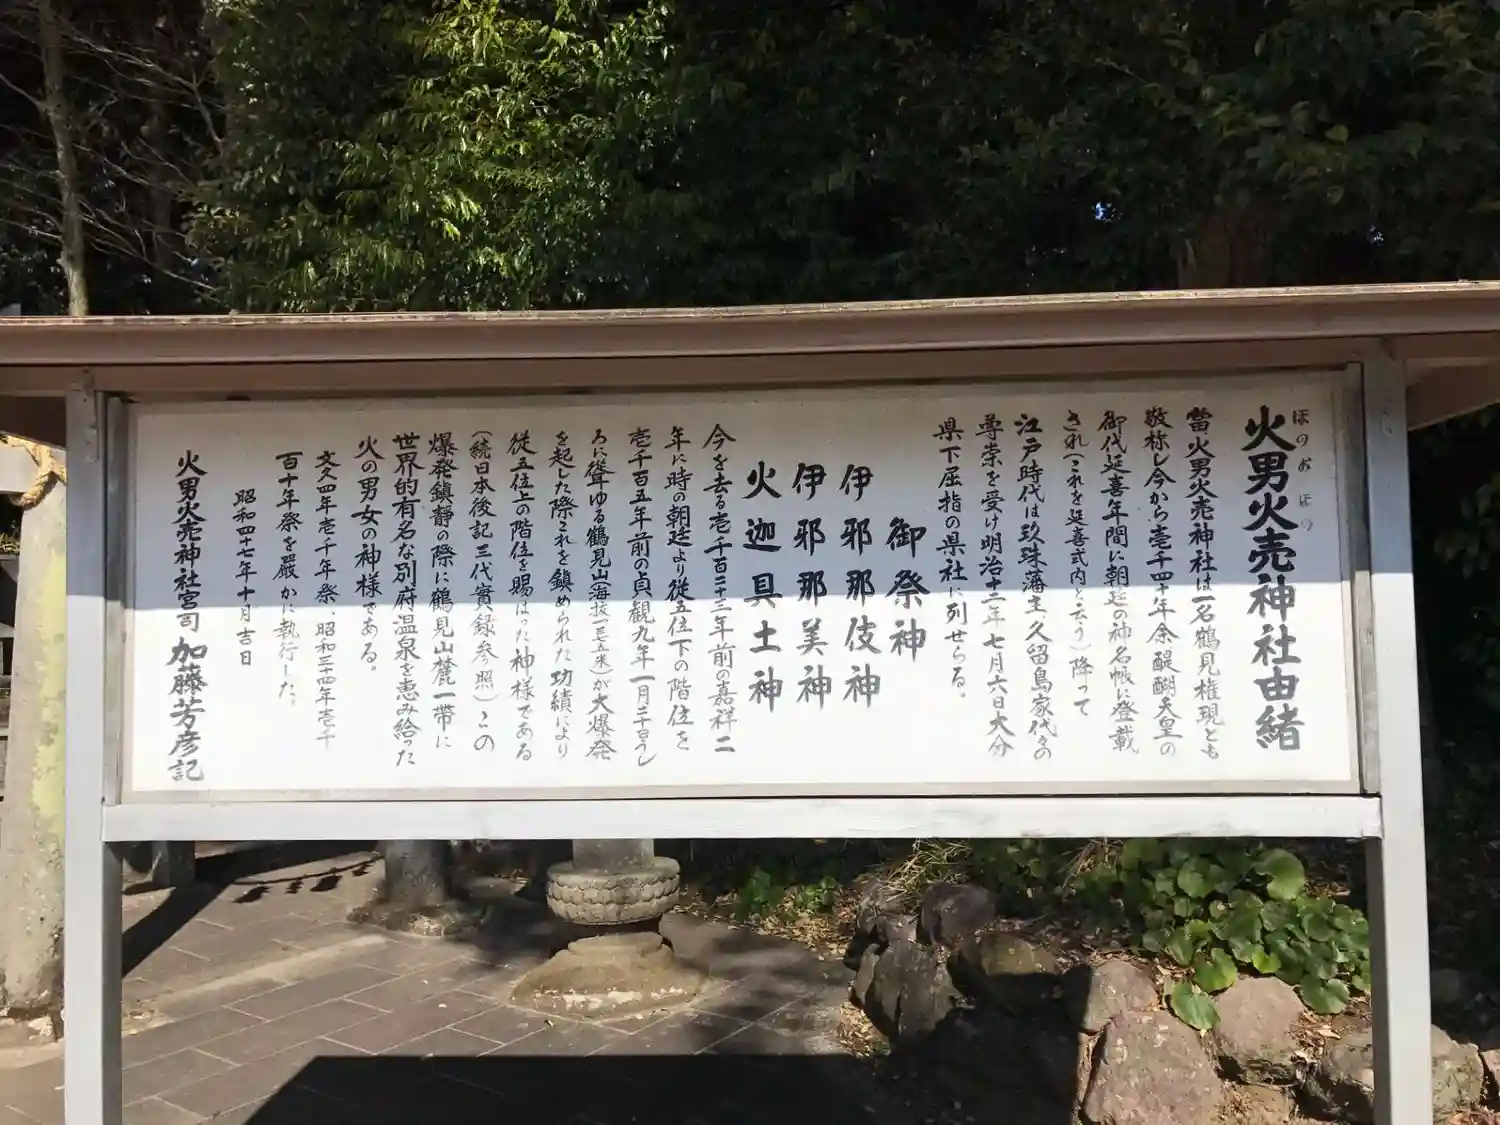 ほのおほのめ
火男火売神社由緒
當火男火売神社は一名鶴見権現とも
敬称し今から壱千四十年余醍醐天皇の
御代延喜年間に朝廷の神名帳に登載
され(これを延喜式内と云う)降って
江戸時代は玖珠藩主久留島家代々の
尊崇を受け明治十二年七月六日大分
県下屈指の県社に列せらる。
御祭神
伊邪那伎神
伊邪那美神
火迦具土神
今を去る壱千百二十三年前の嘉祥二
年に時の朝廷より従五位下の階位を
壱千百五年前の貞観九年一月二十日うし
ろに聳ゆる鶴見山(海抜一三七五米)が大爆発
を起した際これを鎮められた功績により
従五位上の階位を賜はった神様である
(続日本後記三代實録参照)この
爆発鎮静の際に鶴見山麓一帯に
世界的有名な別府温泉を恵み給った
火の男女の神様である。
文久四年壱千年祭昭和三十四年壱千
百十年祭を厳かに執行した。
昭和四十七年十月吉日
火男火売神社宮司 加藤芳彦記